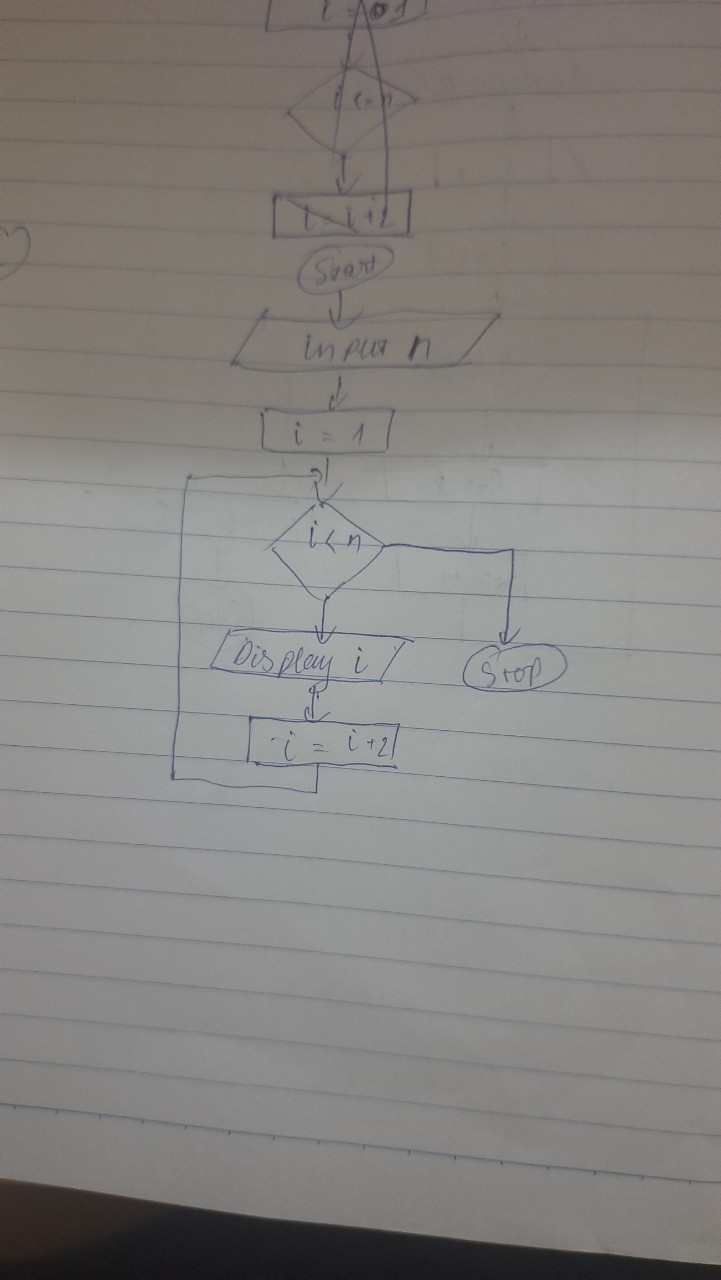 i = 1
i <= n
i = i+2
Start
input n
i = 1
i < n
Display i
Stop
i = i+2